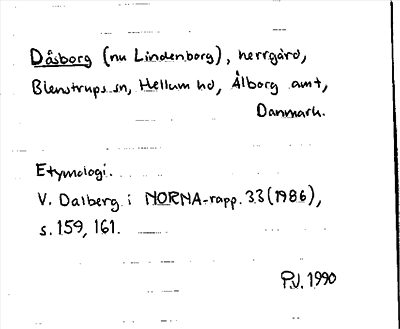 Dåsborg (nu Lindenborg), herrgård,
Blenstrups sn, Hellum hd, Ålborg amt,
Danmark.
Etymologi.
V. Dalberg i NORNA-rapp. 33 (1986),
s. 159, 161.
P.J. 1990